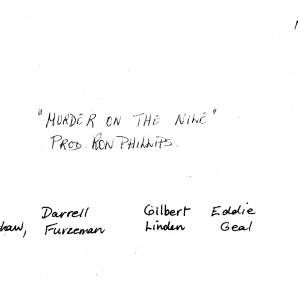 "MURDER ON THE NILE"
PROD. RON PHILLIPS.
Darrell Gilbert Eddie
shaw, Furzeman Linden Geal